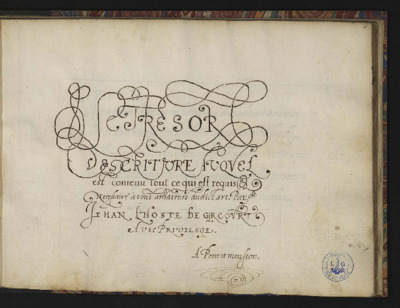 LE TRESOR
D'ESCRITURE AUQUEL
est contenu tout ce qui est requis &
a tous amateurs dudict art Par
JEHAN L'HOSTE DE
AVEC PRIVILEGE.
A Pont a mousson.